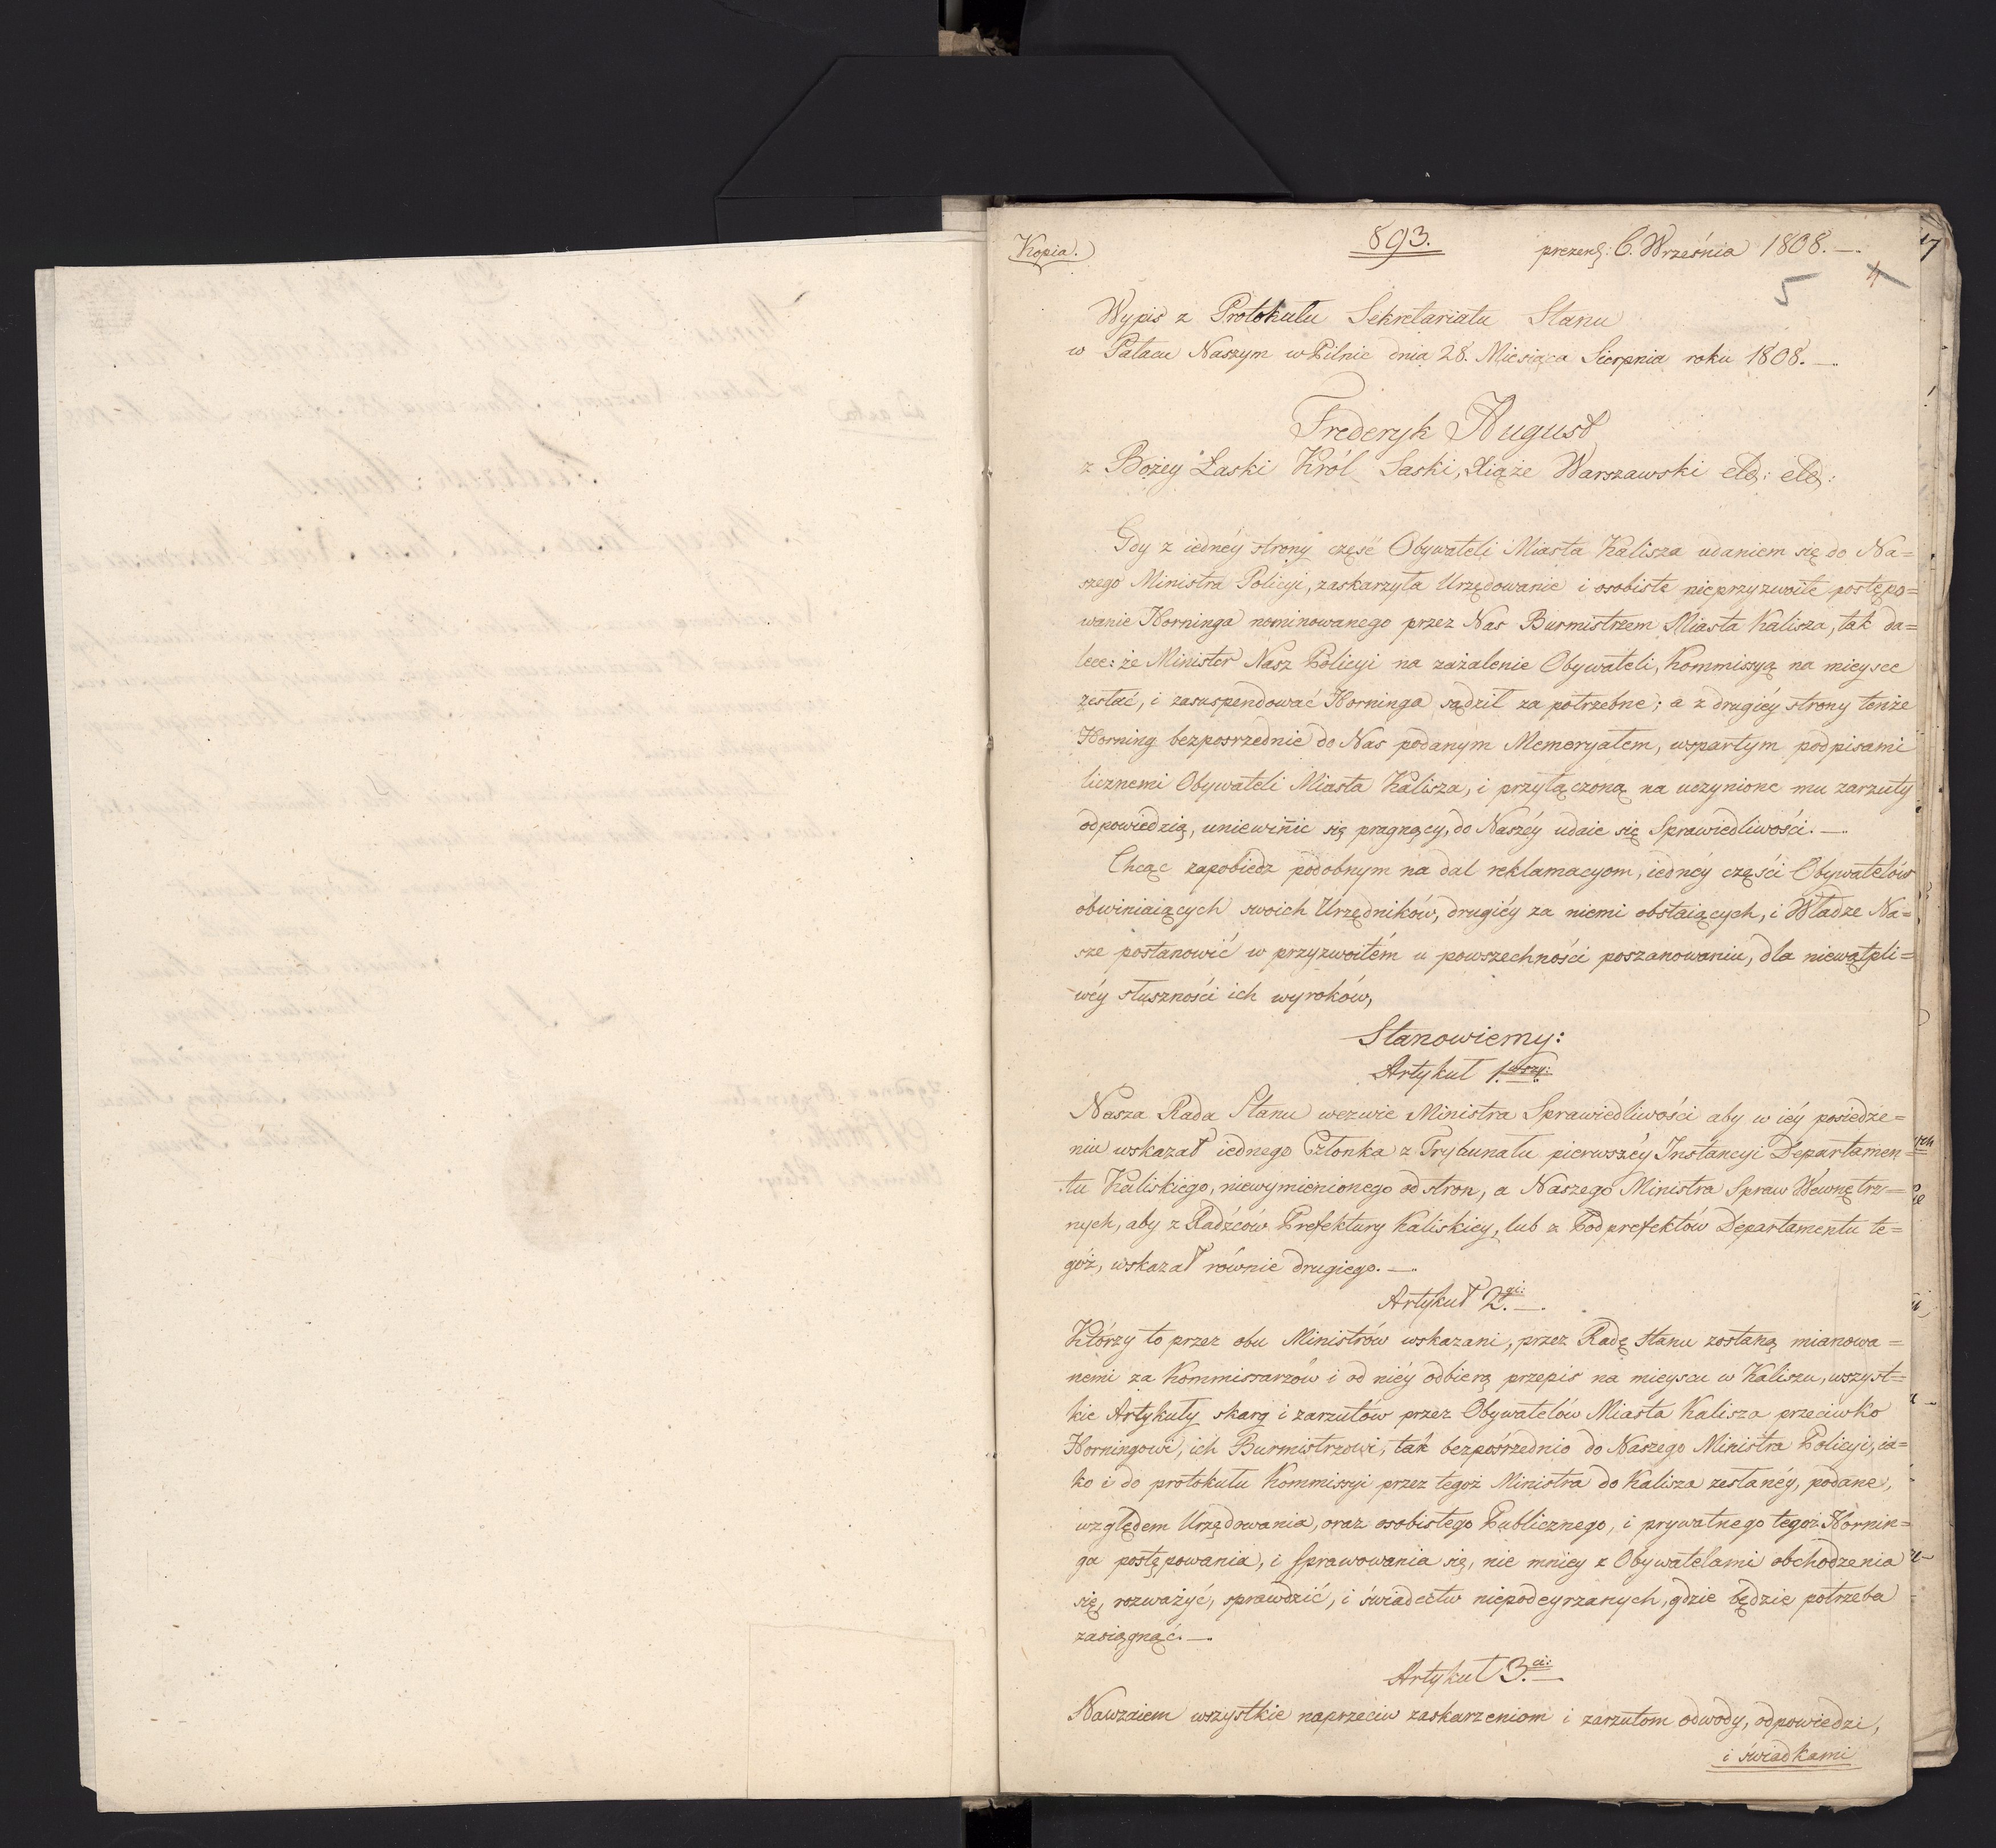 Kopia.
893.
prezent: 6. Września 1808. —
5 4
Wypis z Protokułu Sekretariatu Stanu
w Pałacu Naszym w Pilnic dnia 28. Miesiąca Sierpnia roku 1808. —
Fryderyk August
z Bożey Łaski Król Saski, Xiąże Warszawski etc: etc:
Gdy z iednéy strony część Obywateli Miasta Kalisza udaniem się do Na=
szego Ministra Policyi, zaskarzyła Urzędowanie i osobiste nieprzyzwoite postępo=
wanie Horninga nominowanego przez Nas Burmistrzem Miasta Kalisza, tak da=
lece: że Minister Nasz Policyi na zażalenie Obywateli, Kommissyą na mieysce
zesłać, i zasuspendować Horninga sądził za potrzebne; a z drugiéy strony tenże
Horning bezposrzednie do Nas podanym Memoryałem, wspartym podpisami
licznemi Obywateli Miasta Kalisza, i przyłączoną na uczynione mu zarzuty
odpowiedzią, uniewinić się pragnący, do Naszéy udaie się Sprawiedliwości. —
Chcąc zapobiedz podobnym na dal reklamacyom, iednéy części Obywatelów
obwiniaiących swoich Urzędników, drugiéy za niemi obstaiących, i Władze Na=
sze postanowić w przyzwoitém u powszechności poszanowaniu, dla niewątpli=
wéy słuszności ich wyroków,
Stanowiemy:
Artykuł 1.wszy:
Nasza Rada Stanu wezwie Ministra Sprawiedliwości aby w iéy posiedze=
niu wskazał iednego Członka z Trybunału pierwszéy Instancyi Departamen=
tu Kaliskiego, niewymienionego od stron, a Naszego Ministra Spraw Wewnętrz=
nych, aby z Radźców Prefektury Kaliskiey, lub z Podprefektów Departamentu te=
góż, wskazał równie drugiego. —
Artykuł 2.gi: —
Którzy to przez obu Ministrów wskazani, przez Radę Stanu zostaną mianowa=
nemi za Kommissarzów i od niéy odbierą przepis na mieyscu w Kaliszu, wszyst=
kie Artykuły skarg i zarzutów przez Obywatelów Miasta Kalisza przeciwko
Horningowi, ich Burmistrzowi, tak bezpośrzednio do Naszego Ministra Policyi, ia=
ko i do protokułu Kommissyi przez tegoż Ministra do Kalisza zesłanéy, podane,
względem Urzędowania, oraz osobistego Publicznego, i prywatnego tegoż Hornin=
ga postępowania, i sprawowania się, nie mniey z Obywatelami obchodzenia
się, rozważyć, sprawdzić, i świadectw niepodeyrzanych, gdzie będzie potrzeba
zasiągnąć. —
Artykuł 3.ci: —
Nawzaiem wszystkie naprzeciw zaskarzeniom i zarzutom odwody, odpowiedzi,
i świadkami